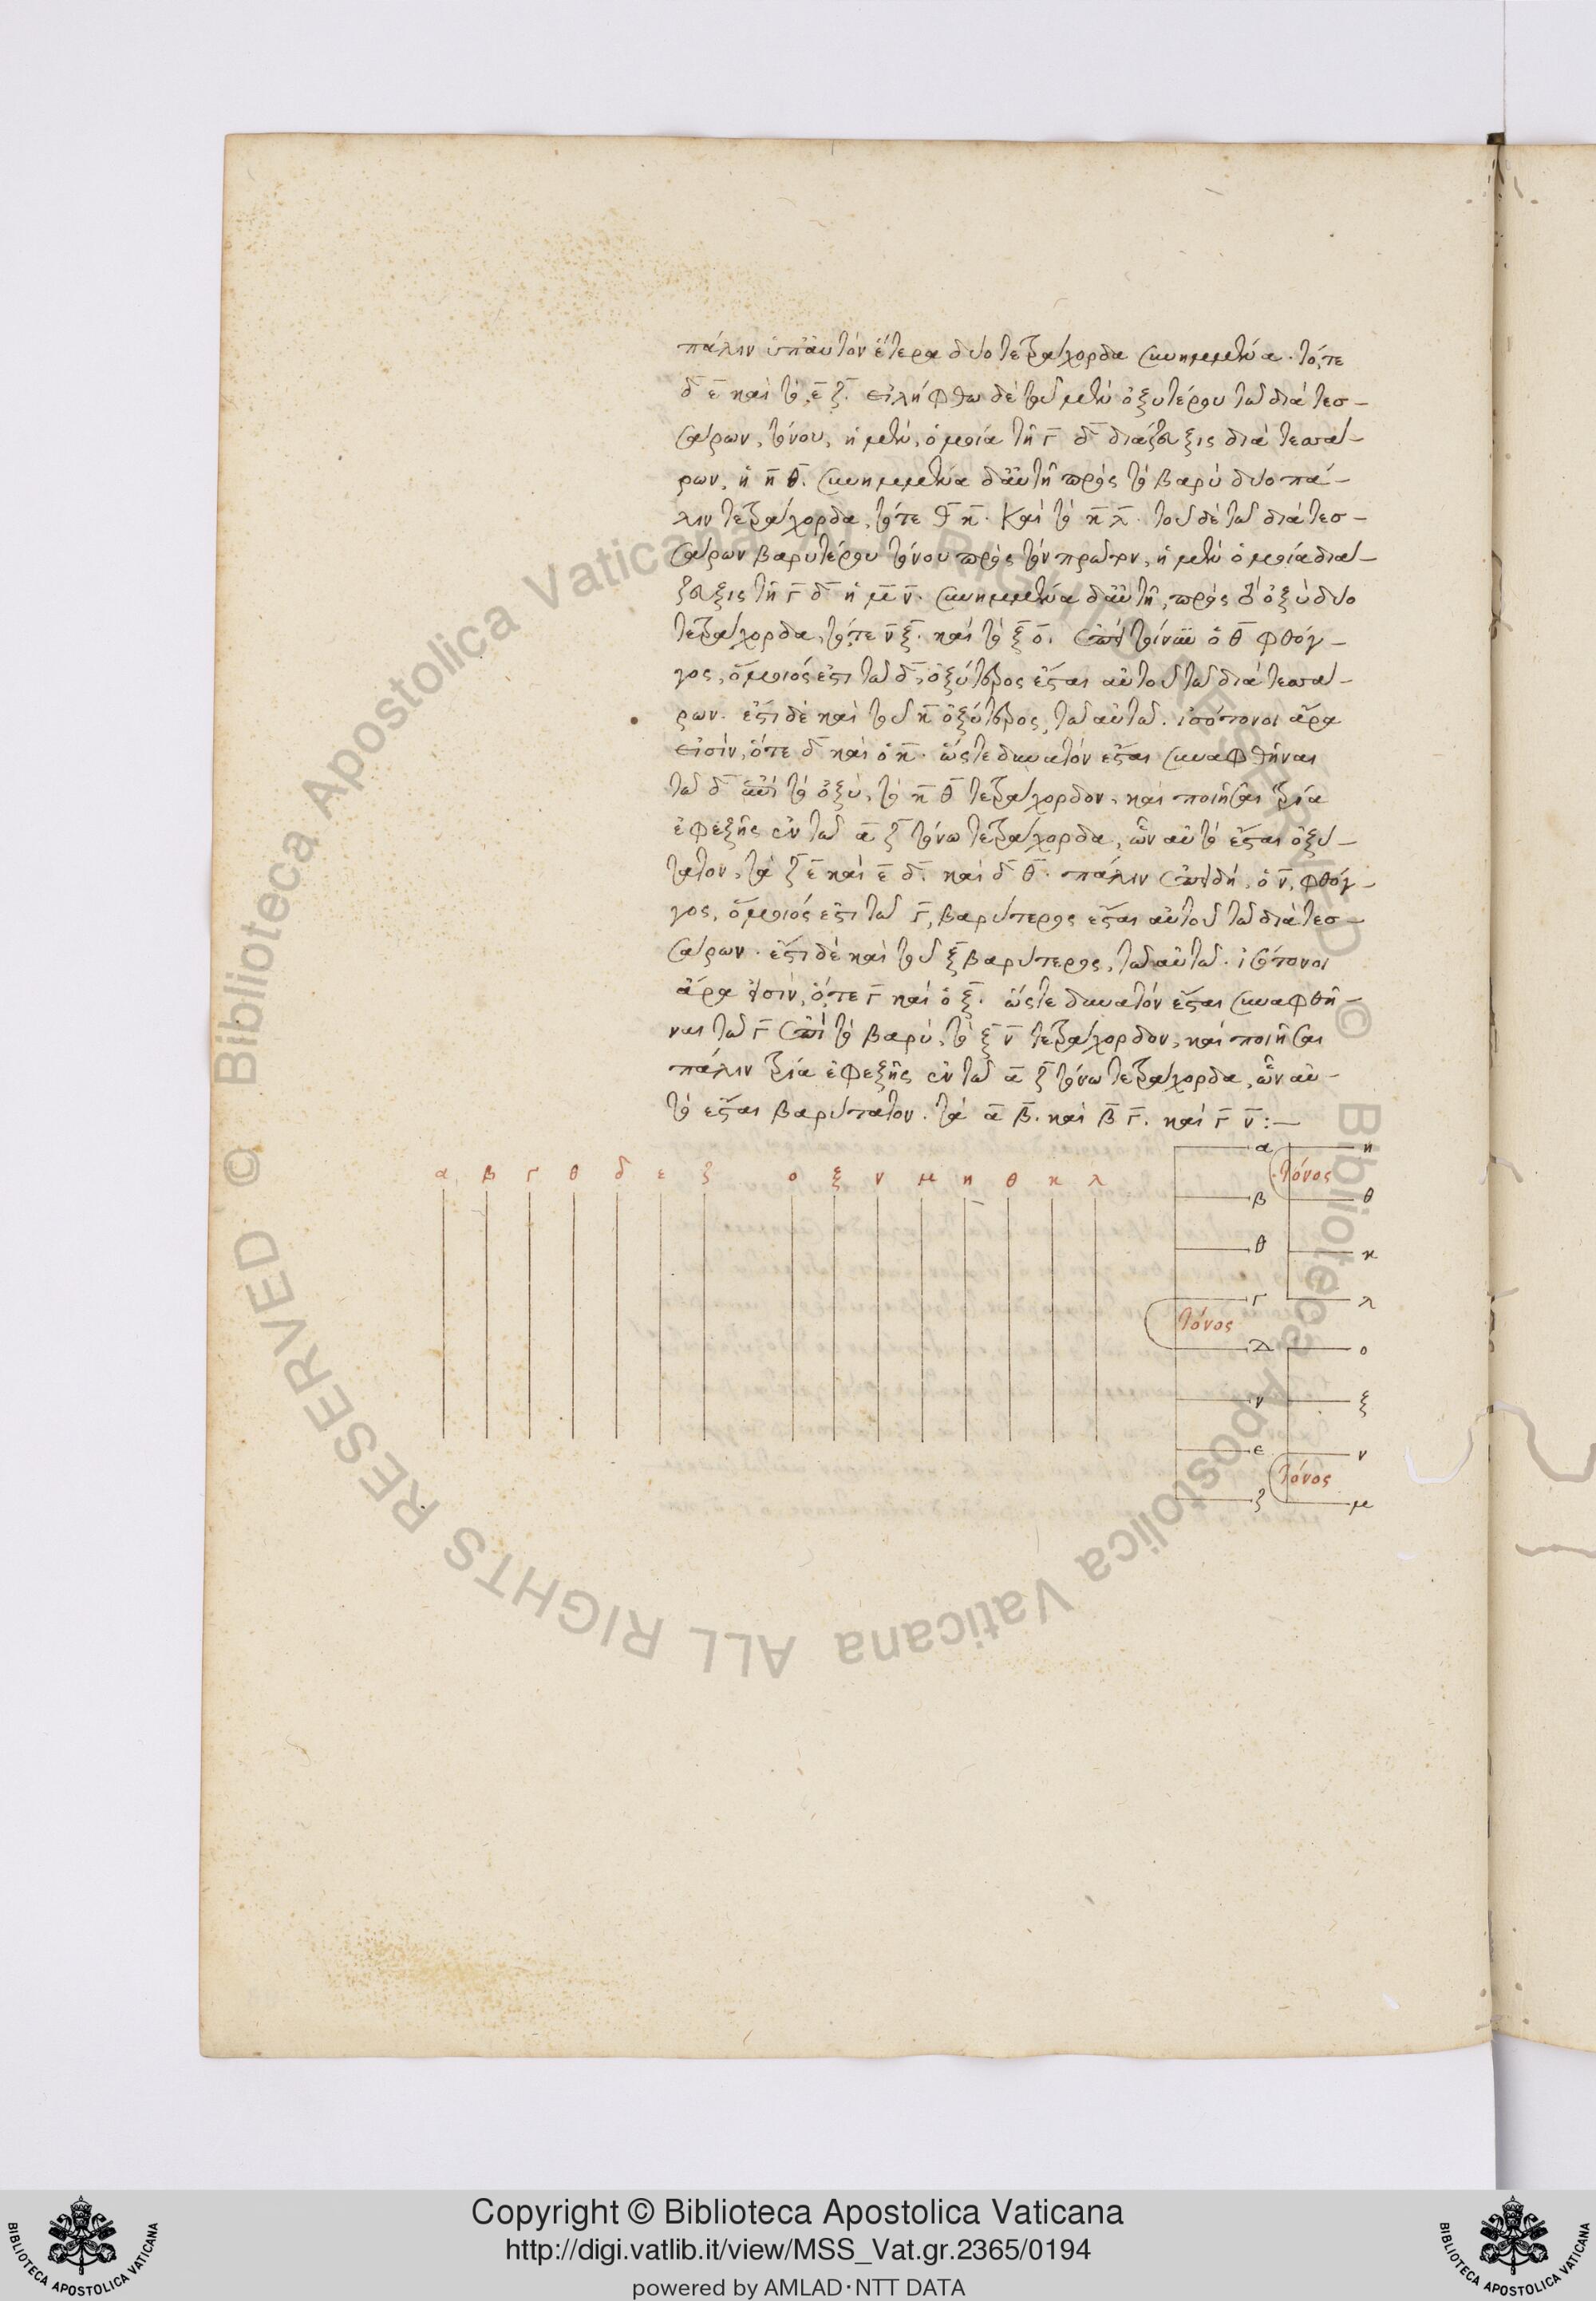 πάλιν ὑπ' αὐτὸν ἕτερα δύο τετράχορδα συνημμένα. τό, τε
δ̅ ε̅ καὶ τὸ ε̅ ζ̅. εἰλήφθω δὲ τοῦ μὲν ὀξυτέρου τῶ διὰ τεσ-
σάρων, τόνου, ἡ μὲν, ὁμοία τῆ γ̅ δ̅ διάζευξις διὰ τεσσά-
ρων, ἡ η̅ θ̅. συνημμένα δ' αὐτῆ πρὸς τὸ βαρὺ δύο πά-
λιν τετράχορδα, τό, τε θ̅ κ̅. καὶ τὸ κ̅ λ̅. τοῦ δὲ τῶ διὰ τεσ-
σάρων βαρυτέρου τόνου πρὸς τὸν πρῶτον, ἡ μὲν ὁμοία διά-
ζευξις τῆ γ̅ δ̅ ἡ μ̅ ν̅. συνημμένα δ' αὐτῆ, πρὸς τὸ ὀξὺ δύο
τετράχορδα, τό, τε ν̅ ξ̅. καὶ τὸ ξ̅ ο̅. ἐπεὶ τοίνυν ὁ θ̅ φθόγ-
γος, ὅμοιός ἐστι τῶ δ̅, ὀξύτερος ἔσται αὐτοῦ τῶ διὰ τεσσά-
ρων. ἔστι δὲ καὶ τοῦ κ̅ ὀξύτερος, τῶ αὐτῶ. ἰσότονοι ἄρα
εἰσὶν, ὅ, τε δ̅ καὶ ὁ κ̅. ὥστε δυνατὸν ἔσται συναφθῆναι
τῶ δ̅ ἐπὶ τὸ ὀξὺ, τὸ κ̅ θ̅ τετράχορδον, καὶ ποιῆσαι τρία
ἐφεξῆς ἐν τῶ α̅ ζ̅ τόνω τετράχορδα, ὧν αὐτὸ ἔσται ὀξύ-
τατον, τὰ ζ̅ ε̅ καὶ ε̅ δ̅. καὶ δ̅ θ̅. πάλιν ἐπειδὴ, ὁ ν̅, φθόγ-
γος, ὅμοιός ἐστι τῶ γ̅, βαρύτερος ἔσται αὐτοῦ τῶ διὰ τεσ-
σάρων. ἔστι δὲ καὶ τοῦ ξ̅ βαρύτερος, τῶ αὐτῶ. ἰσότονοι
ἄρα εἰσὶν, ὅ, τε γ̅ καὶ ὁ ξ̅. ὥστε δυνατὸν ἔσται συναφθῆ-
ναι τῶ γ̅ ἐπὶ τὸ βαρὺ, τὸ ξ̅ ν̅ τετράχορδον, καὶ ποιῆσαι
πάλιν τρία ἐφεξῆς ἐν τῶ α̅ ζ̅ τόνω τετράχορδα, ὧν αὐ-
τὸ ἔσται βαρύτατον. τὰ α̅ β̅. καὶ β̅ γ̅. καὶ γ̅ ν̅:—
α β γ θ δ ε ζ ο ξ ν μ η θ κ λ
α η
τόνος
β θ
θ κ
γ λ
τόνος
λ ο
ν ξ
ε ν
τόνος
ζ μ
© Biblioteca Apostolica Vaticana ALL RIGHTS RESERVED © Biblioteca Apostolica Vaticana ALL RIGHTS RESERVED
Copyright © Biblioteca Apostolica Vaticana
http://digi.vatlib.it/view/MSS_Vat.gr.2365/0194
powered by AMLAD·NTT DATA
BIBLIOTECA APOSTOLICA VATICANA
BIBLIOTECA APOSTOLICA VATICANA